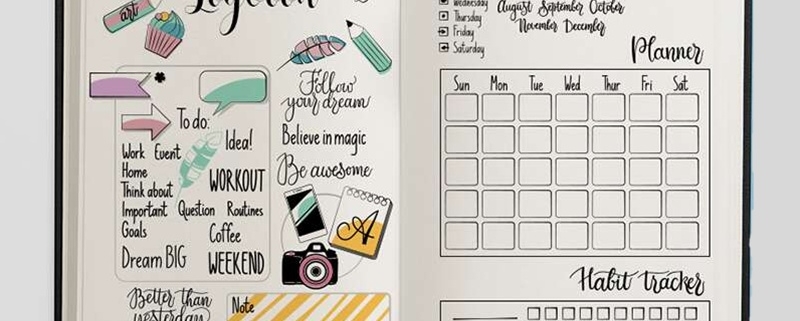 art
To do:
Idea!
Work Event
Home
Think about
WORKOUT
Important Question Routines
Goals
Coffee
Dream BIG
WEEKEND
Better than
yesterday
Follow
your dream
Believe in magic
Be awesome
A
Note
Wednesday
Thursday
Friday
Saturday
August September October
November December
Planner
Sun Mon Tue Wed Thur Fri Sat
Habit tracker